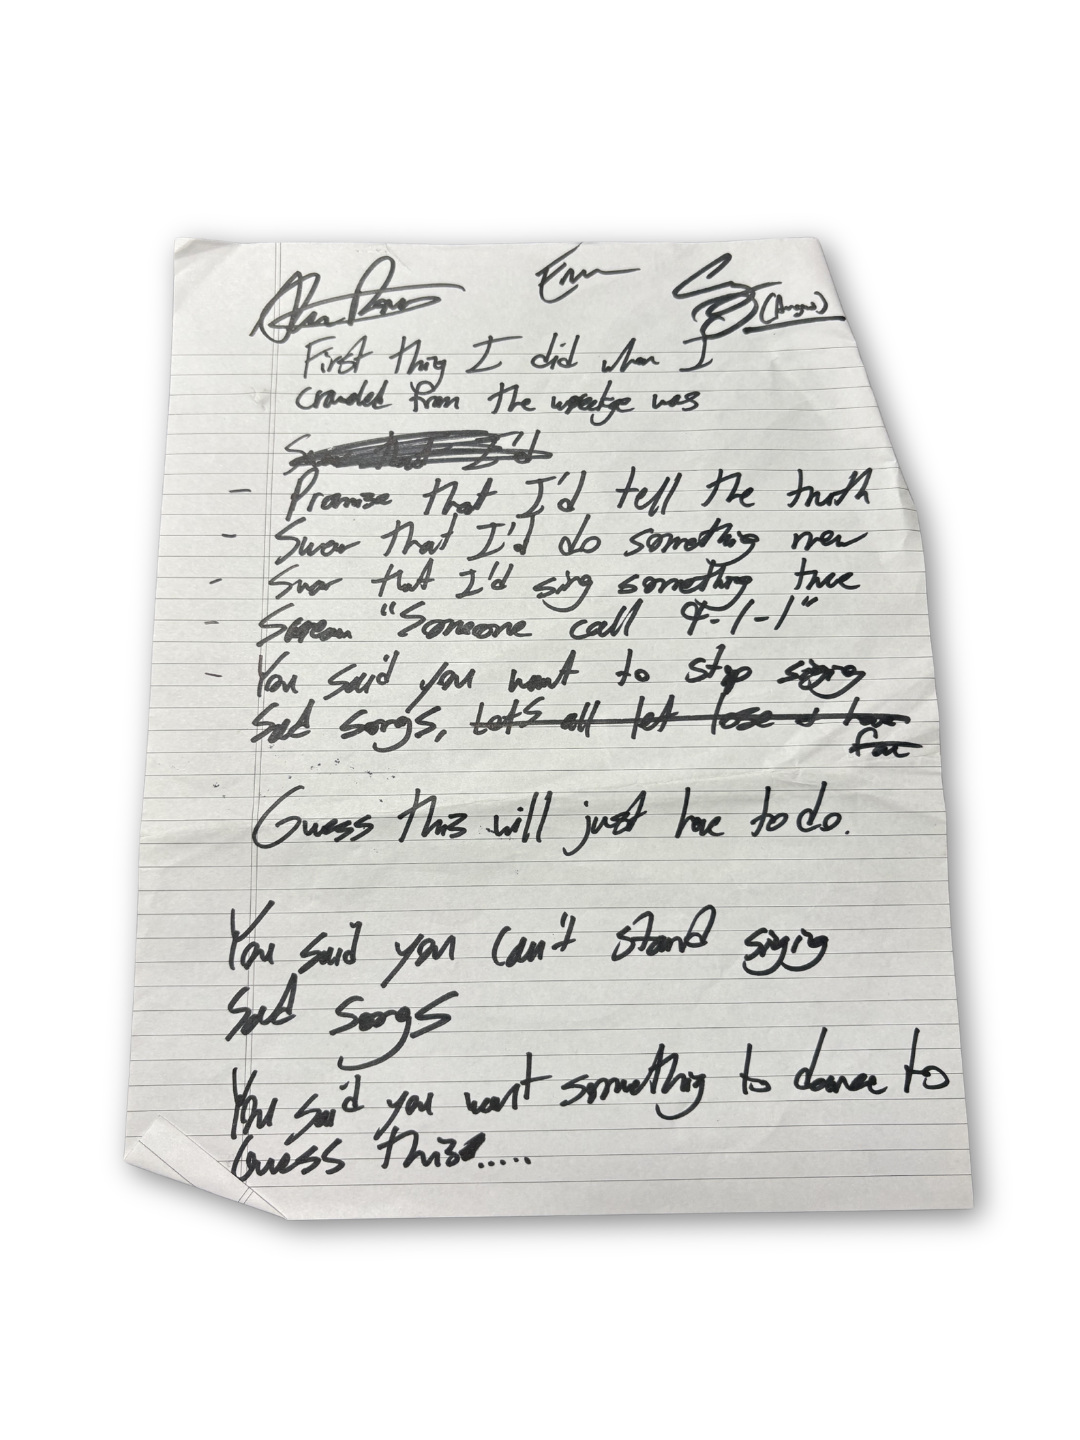 (Angus)
First thing I did when I
crawled from the wreckage was
I'd
- Promise that I'd tell the truth
- Swar that I'd do something new
- Swar that I'd sing something true
- Scream "Someone call 9-1-1"
- You said you want to stop singing
sad songs, Let's all let lose & have
fun
Guess this will just have to do.
You said you can't stand singing
sad songs
You said you want something to dance to
Guess this.....